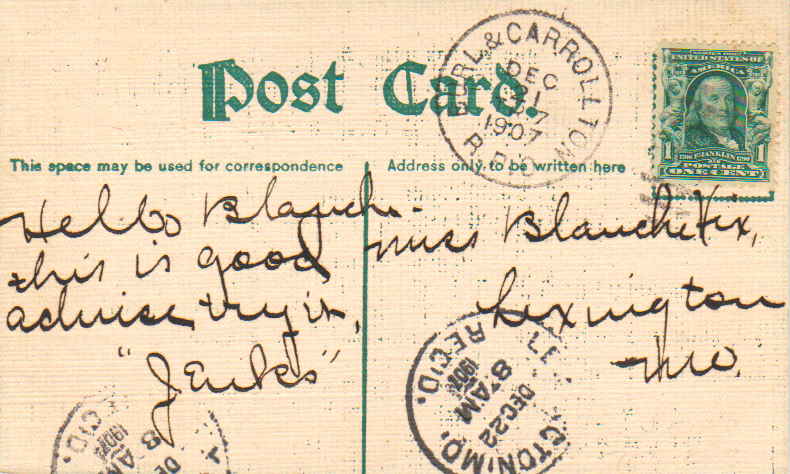 Post Card.
BURL. & CARROLLTON
DEC
21
1907
R.P.O.
UNITED STATES OF
AMERICA
1 FRANKLIN 1
POSTAGE
ONE CENT
This space may be used for correspondence
Address only to be written here
Hello Blanch.
this is good
advise try it.
"Jenks"
Miss Blanche Fix,
Lexington
Mo.
LE CTON, MO.
DEC 22
8 AM
1907
REC'D.
DE
8 AM
1907
EC'D.